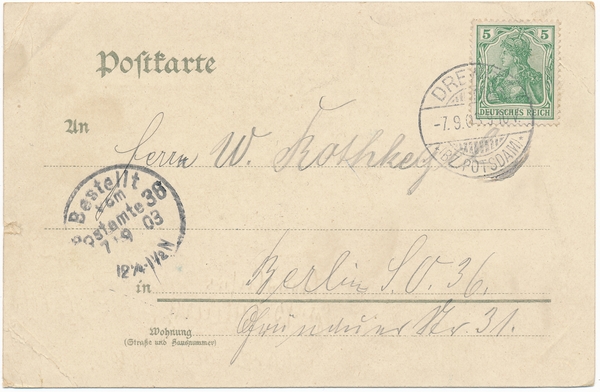 Postkarte
5 5
DEUTSCHES REICH
DRE
-7.9.0
(BZ. POTSDAM)
An
Herrn W.
Bestellt
vom
Postamte 36
7 9 03
12¼-1½N
in
Berlin S.O. 36.
Str. 31.
Wohnung
(Straße und Hausnummer)